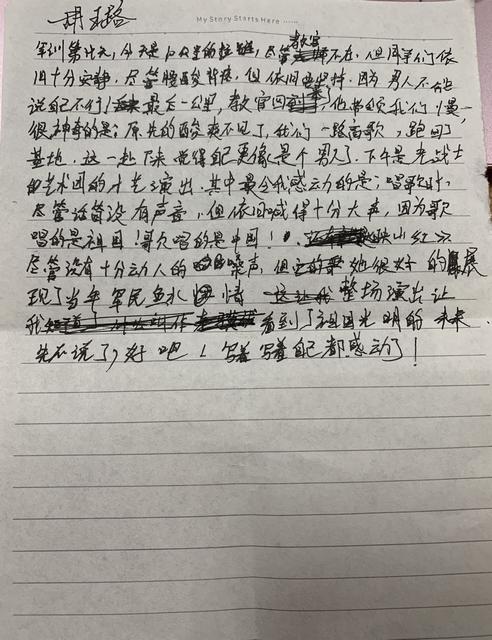 胡玉路
My Story Starts Here ......
军训第七天,今天是12公里的拉链,尽管教官不在,但同学们依
旧十分安静,尽管腿酸背疼,但依旧坚持,因为男人不能
说自己不行!最后一公里,教官回来了,他带领我们慢一
很神奇的是:原先的酸爽不见了,我们一路高歌,跑回了
基地,这一趟下来觉得自己更像是个男人了.下午是老战士
的艺术团的才艺演出.其中最令我感动的是:唱歌时,
尽管话筒没有声音,但依旧喊得十分大声,因为歌
唱的是祖国!歌唱的是中国! 映山红
尽管没有十分动人的嗓声,但它的歌她很好的展
现了当年军民鱼水情 整场演出让
我 看到了祖国光明的未来
先不说了,好吧!写着写着自己都感动了!